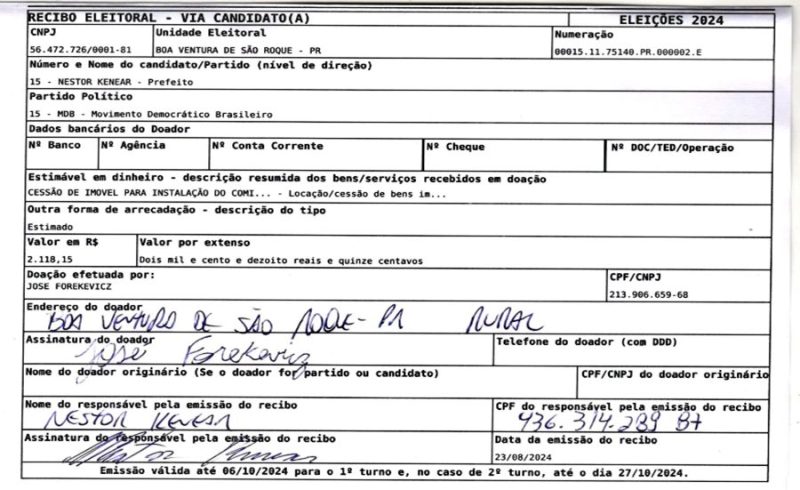 RECIBO ELEITORAL - VIA CANDIDATO(A) ELEIÇÕES 2024
CNPJ Unidade Eleitoral Numeração
56.472.726/0001-81 BOA VENTURA DE SÃO ROQUE - PR 00015.11.75140.PR.000002.E
Número e Nome do candidato/Partido (nível de direção)
15 - NESTOR KENEAR - Prefeito
Partido Político
15 - MDB - Movimento Democrático Brasileiro
Dados bancários do Doador
Nº Banco Nº Agência Nº Conta Corrente Nº Cheque Nº DOC/TED/Operação
Estimável em dinheiro - descrição resumida dos bens/serviços recebidos em doação
CESSÃO DE IMOVEL PARA INSTALAÇÃO DO COMI... - Locação/cessão de bens im...
Outra forma de arrecadação - descrição do tipo
Estimado
Valor em R$ Valor por extenso
2.118,15 Dois mil e cento e dezoito reais e quinze centavos
Doação efetuada por: CPF/CNPJ
JOSE FOREKEVICZ 213.906.659-68
Endereço do doador
BOA VENTURA DE SÃO ROQUE-PR RURAL
Assinatura do doador Telefone do doador (com DDD)
José Forekevicz
Nome do doador originário (Se o doador for partido ou candidato) CPF/CNPJ do doador originário
Nome do responsável pela emissão do recibo CPF do responsável pela emissão do recibo
NESTOR KENEAR 436.314.289 87
Assinatura do responsável pela emissão do recibo Data da emissão do recibo
23/08/2024
Emissão válida até 06/10/2024 para o 1º turno e, no caso de 2º turno, até o dia 27/10/2024.